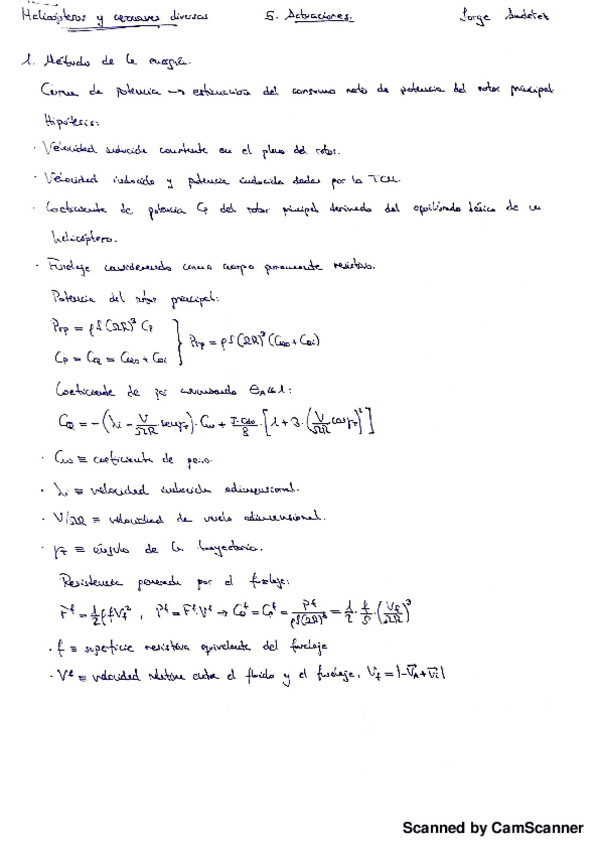 Helicópteros y aeronaves diversas 5. Actuaciones. Jorge
1. Método de la energía.
Curva de potencia → estimación del consumo neto de potencia del rotor principal
Hipótesis:
· Velocidad inducida constante en el plano del rotor.
· Velocidad inducida y potencia inducida dadas por la TCM.
· Coeficiente de potencia Cp del rotor principal derivado del equilibrado básico de un
helicóptero.
· Fuselaje considerado como cuerpo puramente resistivo.
Potencia del rotor principal:
Prp = ρS(ΩR)³ Cp
Cp = CQ = CQo + CQi } Prp = ρS(ΩR)³ (CQo + CQi)
Coeficiente de par asumiendo θA≪1:
CQ = -(λi - V/ΩR senγT)·Cw + σ·Cdo/8 ·[1 + 3·(V/ΩR cosγT)²]
· Cw ≡ coeficiente de peso.
· λi ≡ velocidad inducida adimensional.
· V/ΩR ≡ velocidad de vuelo adimensional.
· γT ≡ ángulo de la trayectoria.
Resistencia generada por el fuselaje:
Fᶠ = 1/2 ρfVf² , Pᶠ = Fᶠ·Vᶠ → CQᶠ = Cpᶠ = Pᶠ/ρS(ΩR)³ = 1/2 · f/S · (Vf/ΩR)³
· f ≡ superficie resistiva equivalente del fuselaje
· Vᶠ ≡ velocidad relativa entre el fluido y el fuselaje, Vf = |-V⃗A + V⃗i|
Scanned by CamScanner